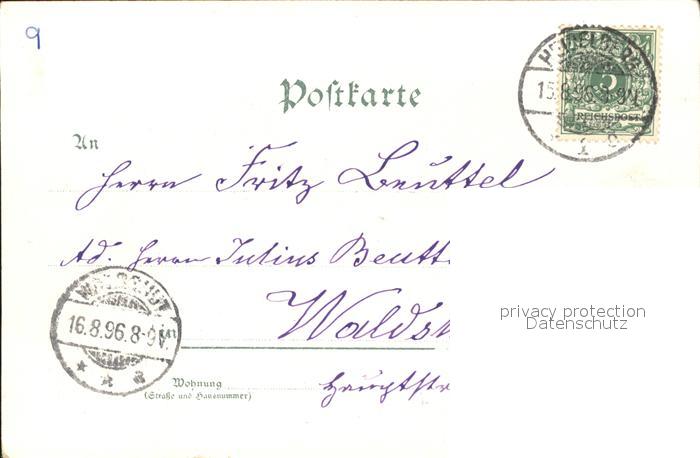 9
HEIDELBERG
15.8.96. 8-9N.
1 c
5
REICHSPOST
Postkarte
An
Herrn Fritz Beuttel
Ad. Herrn Julius Beutt
Walds
WALDSHUT
16.8.96.8-9V.
Hauptstr
Wohnung
(Straße und Hausnummer)
privacy protection
Datenschutz